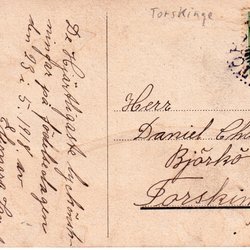 Torskinge
De Hjärtligaste lyckönsk-
ningar på födelsedagen
den 23/5 1918 av
Herr
Daniel
Björkö
Torskin